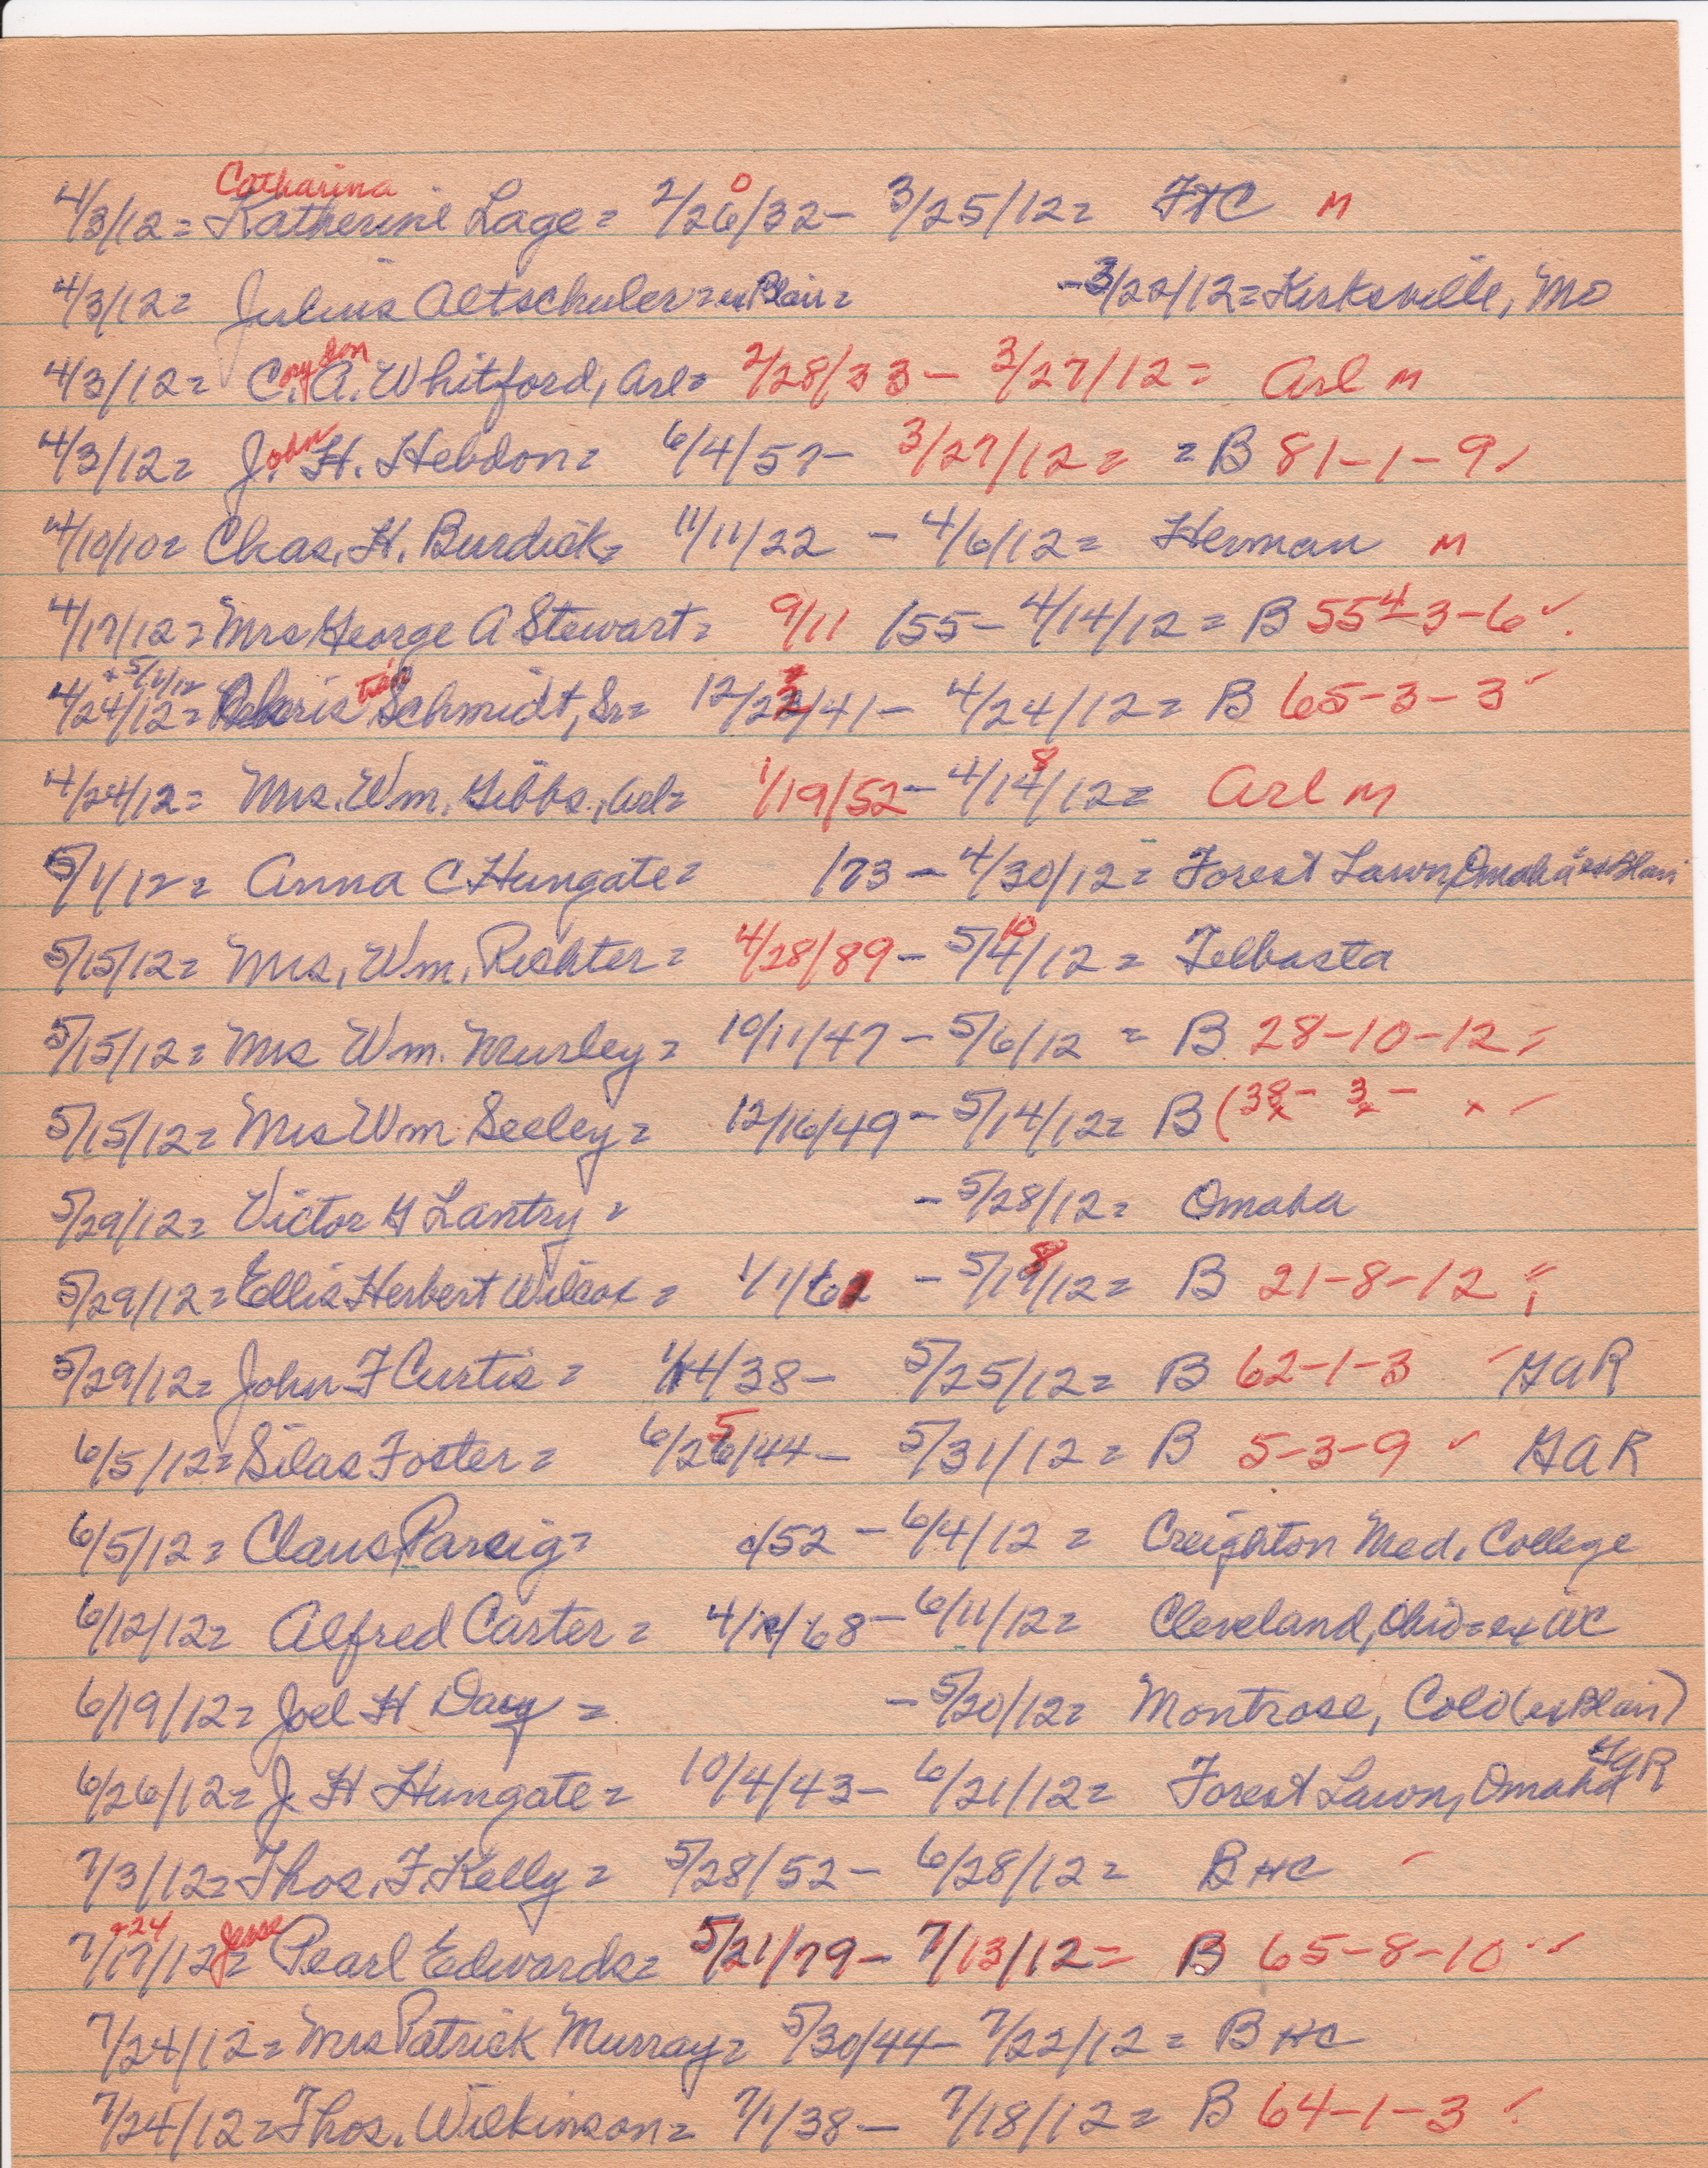 Catharina
4/3/12= Katherine Lage= 2/26/32- 3/25/12= FTC M
4/3/12= Julius Altschuler= ex Blair= -3/22/12=Kirksville, Mo
4/3/12= C.orydon A. Whitford, Arl= 2/28/33- 3/27/12= Arl M
4/3/12= J.ohn H. Hebdon= 6/4/57- 3/27/12= =B 81-1-9✓
4/10/10= Chas. H. Burdick= 11/11/22 - 4/6/12= Herman M
4/17/12=Mrs George A Stewart= 9/11 /55- 4/14/12= B 554-3-6✓
+5/1/12
4/24/12= Christian Schmidt, Sr= 12/23/41- 4/24/12= B 65-3-3✓
4/24/12= Mrs. Wm. Gibbs, Arl= 1/19/52- 4/148/12= Arl M
5/1/12= Anna C Hungate= /73 - 4/30/12= Forest Lawn, Omaha ex Blair
5/15/12= Mrs. Wm. Richter= 4/28/89- 5/4 10/12= Telbasta
5/15/12= Mrs Wm. Murley= 10/11/47 - 5/6/12 = B 28-10-12=
5/15/12= Mrs Wm Seeley= 12/16/49- 5/14/12= B (38- 3- x -
5/29/12= Victor G Lantry= -5/28/12= Omaha
5/29/12=Ellis Herbert Wilcox= 1/1/62 - 5/198/12= B 21-8-12
5/29/12= John F Curtis= 1/14/38- 5/25/12= B 62-1-3 ✓ GAR
6/5/12=Silas Foster= 6/265/44- 5/31/12= B 5-3-9 ✓ GAR
6/5/12= Claus Parsig= c/52 - 6/4/12= Creighton Med. College
6/12/12= Alfred Carter= 4/ /68- 6/11/12= Cleveland, Ohio=ex AC
6/19/12= Joel H Davy= -5/20/12= Montrose, Colo (ex Blair)
6/26/12= J H Hungate= 10/4/43- 6/21/12= Forest Lawn, Omaha GAR
7/3/12=Thos. F. Kelly= 5/28/52- 6/28/12= B HC ✓
+24 Jesse
7/17/12= Pearl Edwards= 5/21/79- 7/13/12= B 65-8-10 ✓
7/24/12= Mrs Patrick Murray= 5/30/44- 7/22/12= B HC
7/24/12=Thos. Wilkinson= 7/1/38- 7/18/12= B 64-1-3 ✓